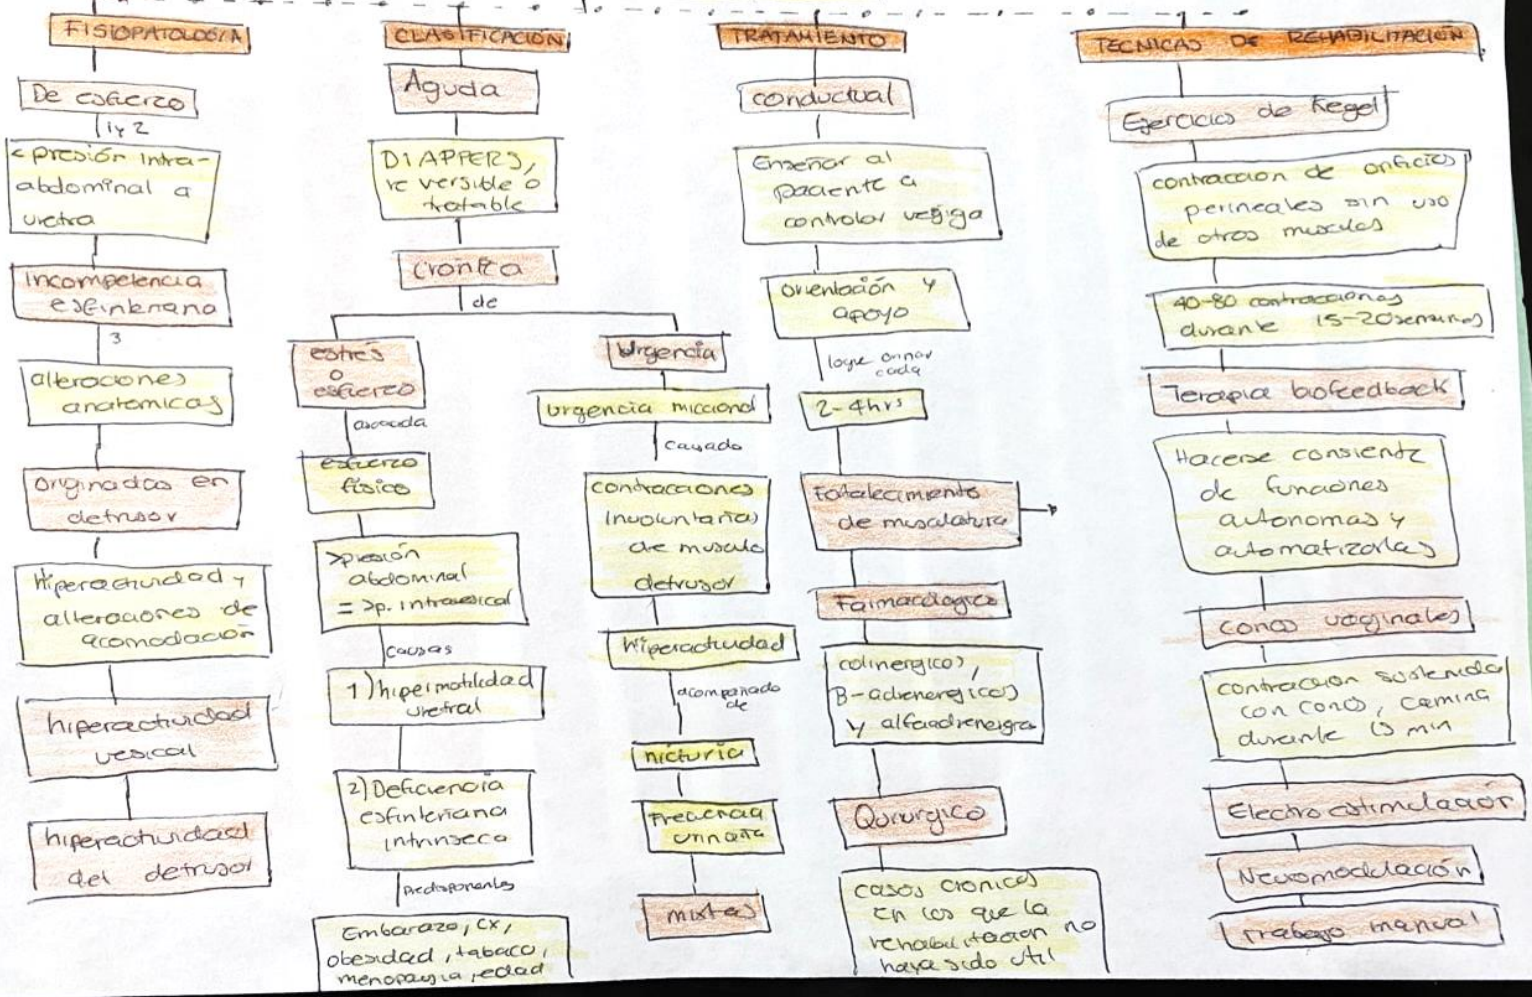 FISIOPATOLOGÍA
De esfuerzo
1 y 2
< presión intra-
abdominal a
uretra
incompetencia
esfinteriana
3
alteraciones
anatomicas
originadas en
detrusor
Hiperactividad y
alteraciones de
acomodación
hiperactividad
vesical
hiperactividad
del detrusor
CLASIFICACIÓN
Aguda
DIAPPERS,
reversible o
tratable
Cronica
de
estrés
o
esfuerzo
asociada
esfuerzo
físico
>presión
abdominal
= >p. intravesical
causas
1) hipermotilidad
uretral
2) Deficiencia
esfinteriana
intrinseca
Predisponentes
Embarazo, cx,
obesidad, tabaco,
menopausia, edad
Urgencia
urgencia miccional
causado
contracciones
involuntarias
de musculo
detrusor
Hiperactividad
acompañado
de
nicturia
Frecuencia
urinaria
mixtas
TRATAMIENTO
conductual
Enseñar al
paciente a
controlar vegiga
orientación y
apoyo
logre orinar
cada
2-4hrs
Fortalecimiento
de musculatura
Farmacologico
colinergicos,
B-adrenergicos
y alfaadrenergicos
Quirurgico
casos cronicos
en los que la
rehabilitación no
haya sido util
TECNICAS DE REHABILITACIÓN
Ejercicios de Kegel
contracción de orificios
perineales sin uso
de otros musculos
40-80 contracciones
durante 15-20 semanas
Terapia biofeedback
Hacerse consiente
de funciones
autonomas y
automatizarlas
conos vaginales
contracción sostenida
con conos, camina
durante 15 min
Electroestimulación
Neuromodulación
Trabajo manual